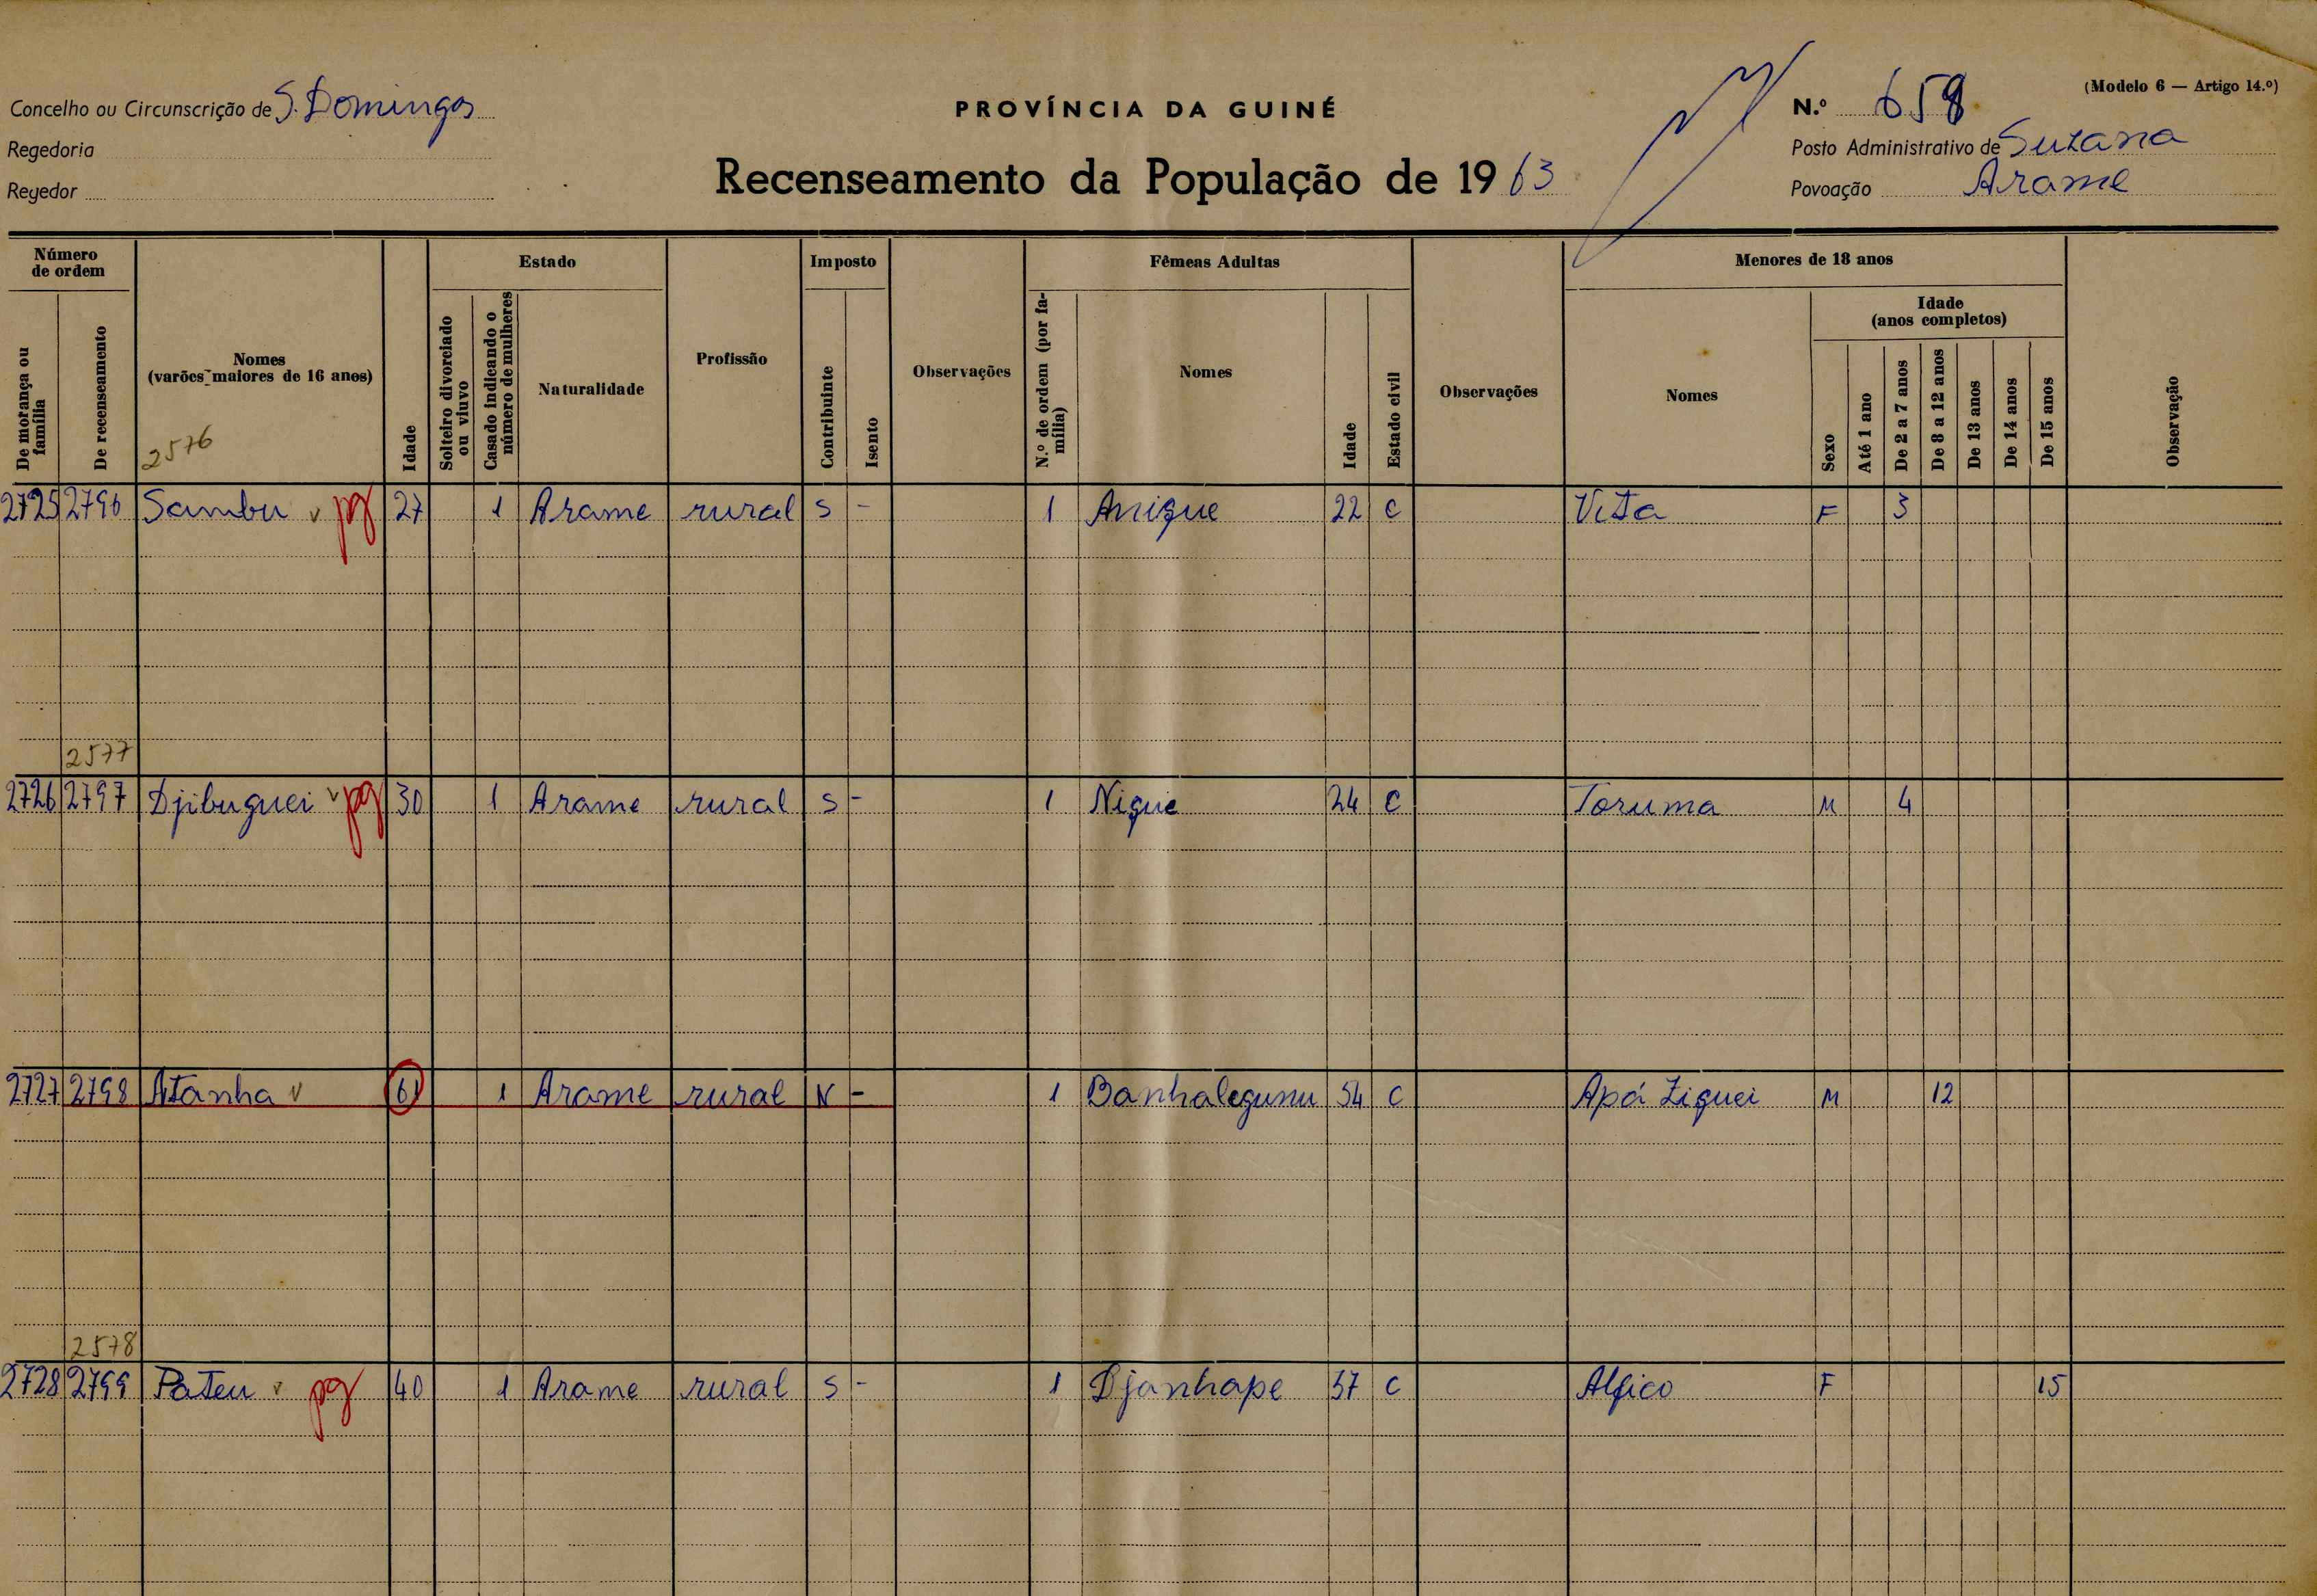 (Modelo 6 — Artigo 14.º)
Concelho ou Circunscrição de S. Domingos
PROVÍNCIA DA GUINÉ
N.º 658
Regedoria
Posto Administrativo de Suzana
Regedor
Recenseamento da População de 1963
Povoação Arame
Número de ordem
De morança ou família
De recenseamento
Nomes
(varões maiores de 16 anos)
2576
Idade
Estado
Solteiro divorciado ou viuvo
Casado indicando o número de mulheres
Naturalidade
Profissão
Imposto
Contribuinte
Isento
Observações
Fêmeas Adultas
N.º de ordem (por família)
Nomes
Idade
Estado civil
Observações
Menores de 18 anos
Nomes
Sexo
Idade
(anos completos)
Até 1 ano
De 2 a 7 anos
De 8 a 12 anos
De 13 anos
De 14 anos
De 15 anos
Observação
2725 2796 Sambu v pg 27 1 Arame rural S - 1 Anique 22 C Vita F 3
2577
2726 2797 Djibuguei v pg 30 1 Arame rural S - 1 Nique 24 C Toruma M 4
2727 2798 Atanha v 61 1 Arame rural N - 1 Banhalegunu 54 C Apá Ziguei M 12
2578
2728 2799 Pateu v pg 40 1 Arame rural S - 1 Djanhape 37 C Alfico F 15